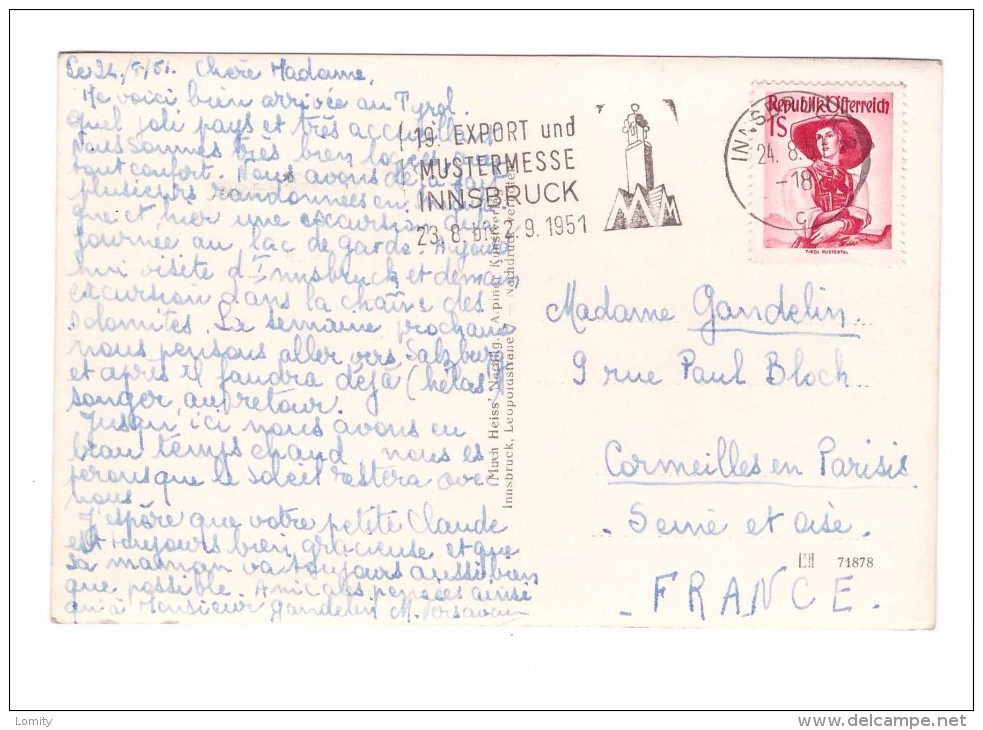 Le 24/8/51. Chère Madame,
Me voici bien arrivée au Tyrol.
Quel joli pays et très
nous sommes très bien
tout confort. Nous avons déjà
plusieurs randonnées en
que et hier une excursion d'une
journée au lac de garde. Aujourd'
hui visite d'Innsbruck et demain
excursion dans la chaîne des
Dolomites. La semaine prochaine
nous pensons aller vers Salzburg
et après il faudra déjà (hélas)
songer au retour.
Jusqu'ici nous avons eu
beau temps chaud nous es
pérons que le soleil restera avec
nous.
J'espère que votre petite Claude
est toujours bien gracieuse et que
sa maman va toujours aussi bien
que possible. Amicales pensées ainsi
qu'à Monsieur Gandelin M.
19. EXPORT und
MUSTERMESSE
INNSBRUCK
23.8. bis 2.9.1951
INNSBRUCK
24.8.51
-18
c
Republik Österreich
1S
TIROL PUSTERTAL
(Much Heiss' Nachflg.) Alpiner Kunstverlag
Innsbruck, Leopoldstraße — Nachdruck verboten
Madame Gandelin.
9 rue Paul Bloch
Cormeilles en Parisis
- Seine et Oise.
71878
- FRANCE.
Lomity
www.delcampe.net